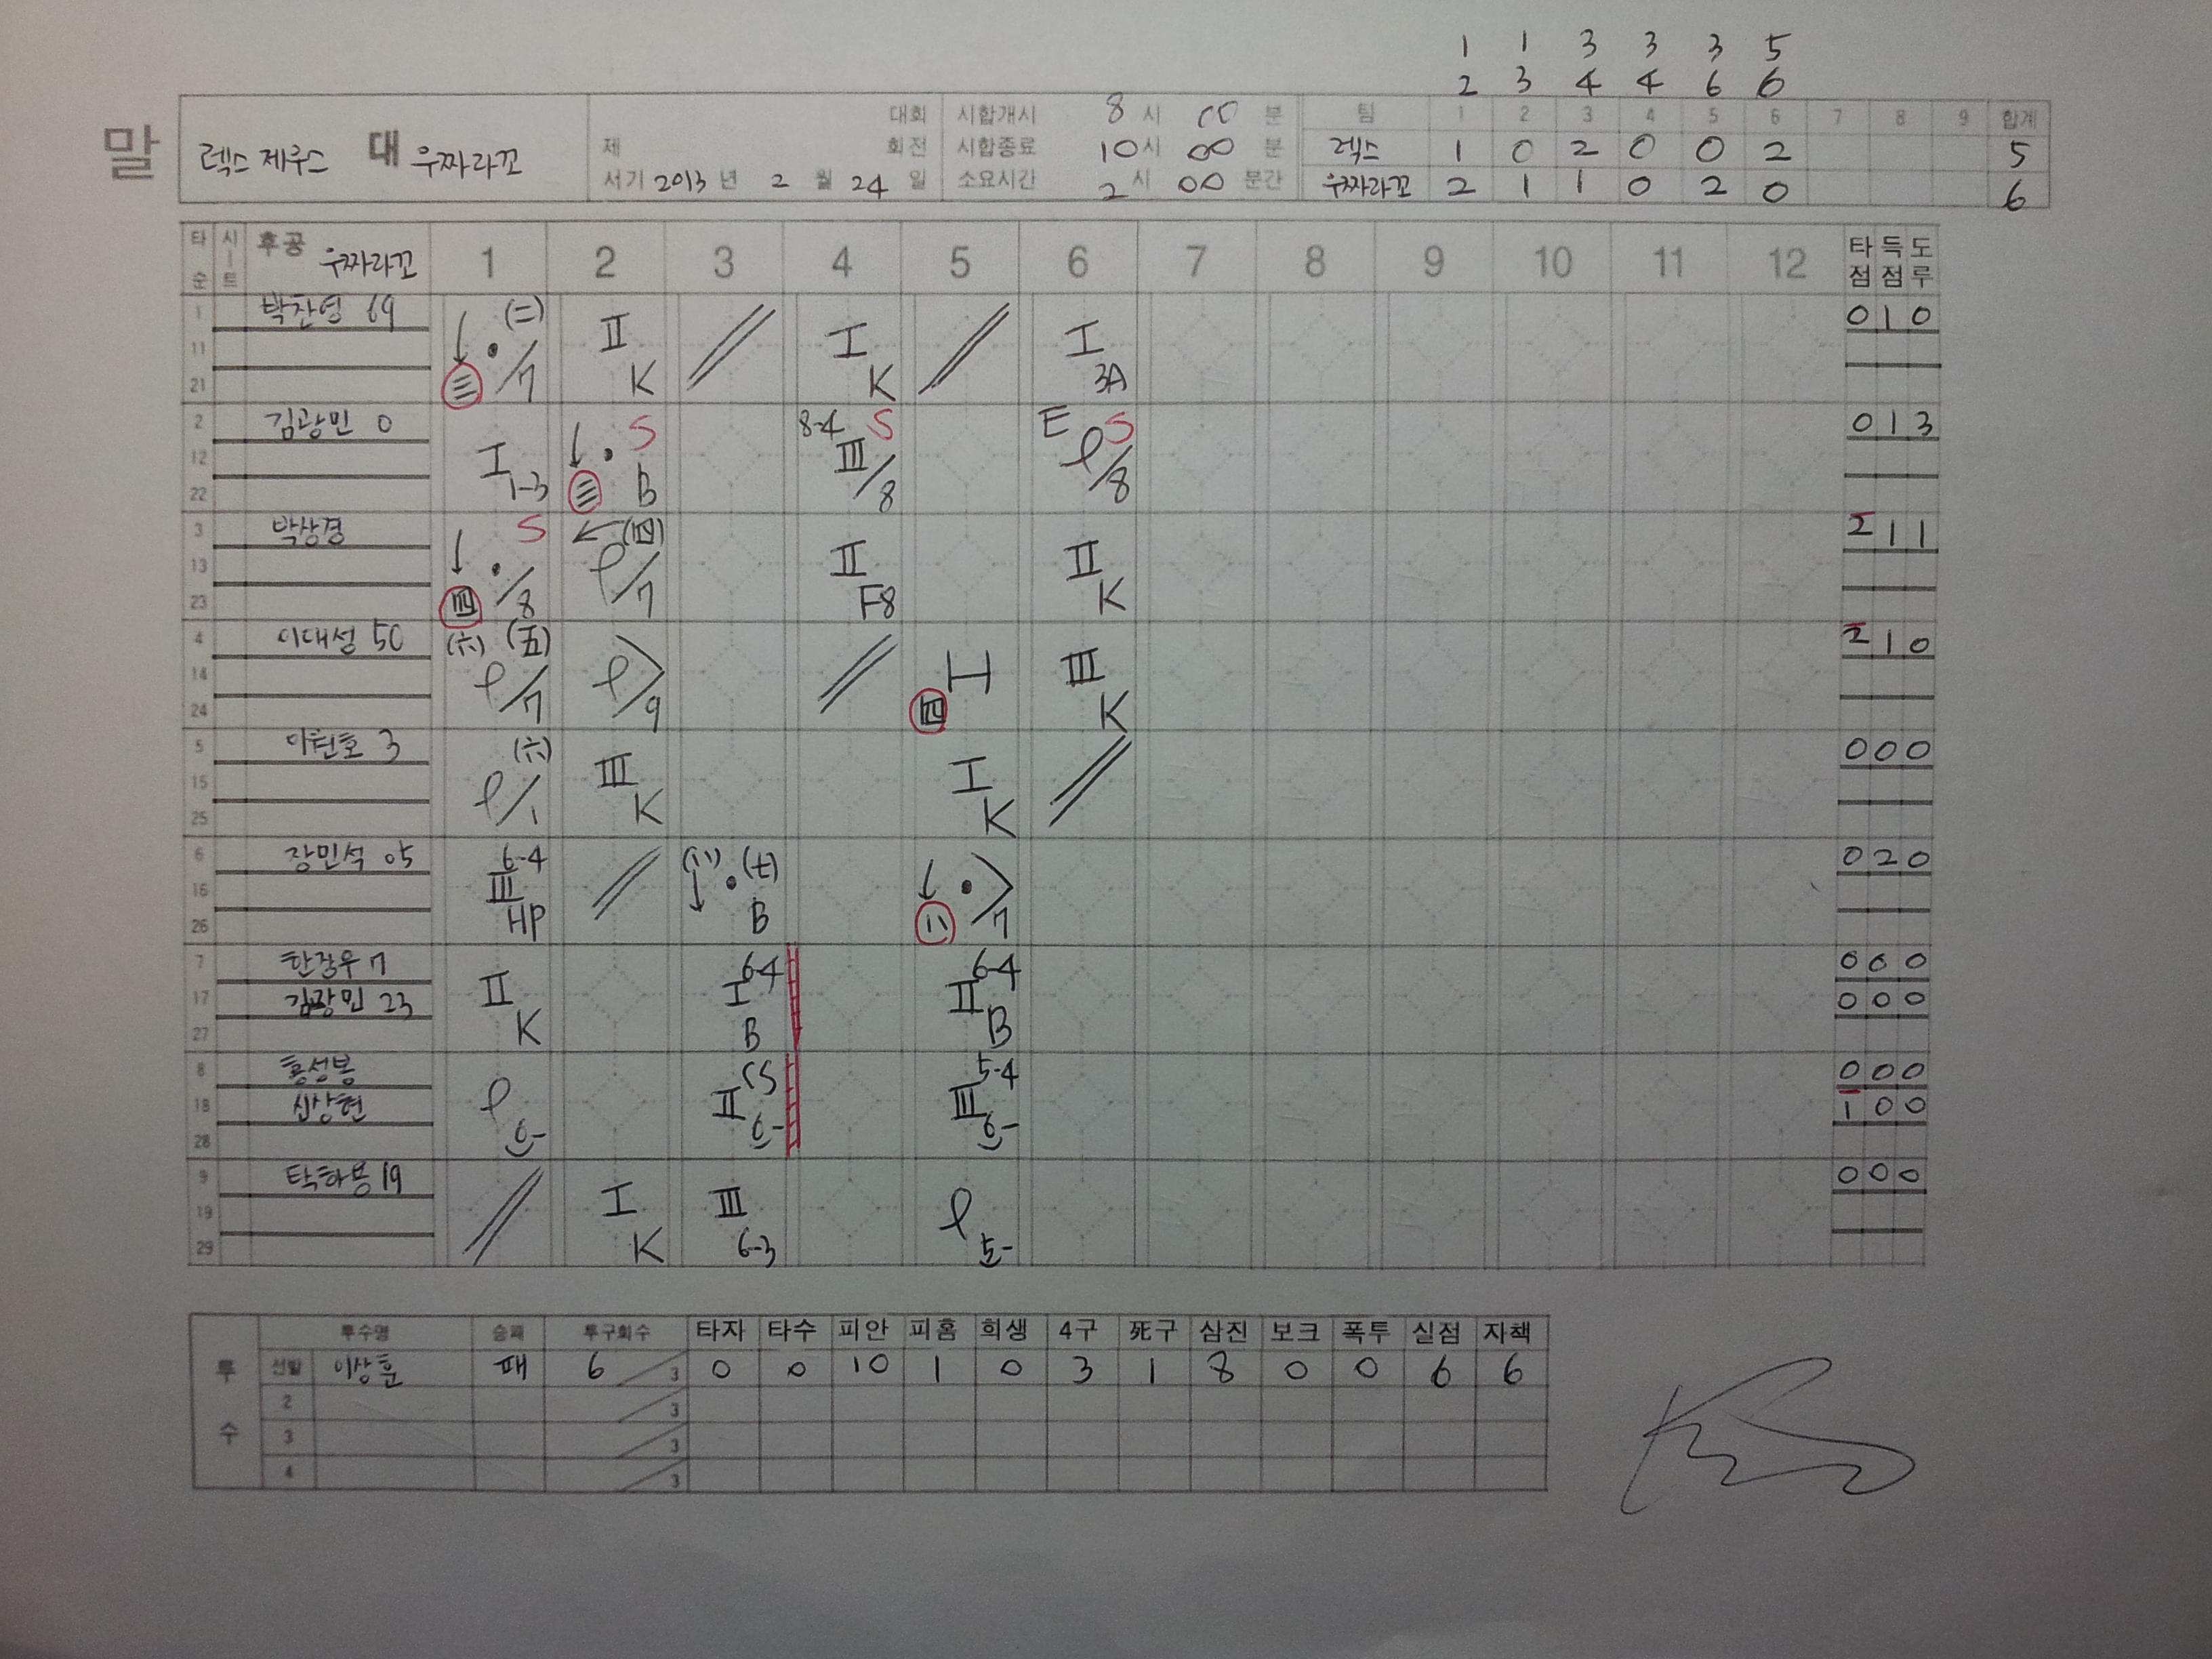 1 1 3 3 3 5
2 3 4 4 6 6
말
렉스 제우스 대 우짜라꼬
대회
제 회전
서기 2013 년 2 월 24 일
시합개시 8 시 00 분
시합종료 10 시 00 분
소요시간 2 시 00 분간
팀 1 2 3 4 5 6 7 8 9 합계
렉스 1 0 2 0 0 2 5
우짜라꼬 2 1 1 0 2 0 6
타순 시트 후공 우짜라꼬 1 2 3 4 5 6 7 8 9 10 11 12 타점 득점 도루
1 11 21 박찬영 69 (二) 三 /7 II K I K I 3A 0 1 0
2 12 22 김광민 0 I 1-3 S 三 B 8-4 S III /8 E S /8 0 1 3
3 13 23 박상경 S 四 /8 (四) /7 II F8 II K 2 1 1
4 14 24 이대성 50 (六) (五) /7 /9 I 四 III K 2 1 0
5 15 25 3 (六) /1 III K I K 0 0 0
6 16 26 장민석 05 6-4 III HP (七) B /7 0 2 0
7 17 27 한장우 7 II K 6-4 I B 6-4 II B 0 0 0
김광민 23 0 0 0
8 18 28 홍성봉 6- CS II 6- 5-4 III 6- 0 0 0
신상현 1 0 0
9 19 29 탁하봉 19 I K III 6-3 5- 0 0 0
투수 투수명 승패 투구회수 타자 타수 피안 피홈 희생 4구 死구 삼진 보크 폭투 실점 자책
선발 이상훈 패 6 /3 0 0 10 1 0 3 1 8 0 0 6 6
2 /3
3 /3
4 /3